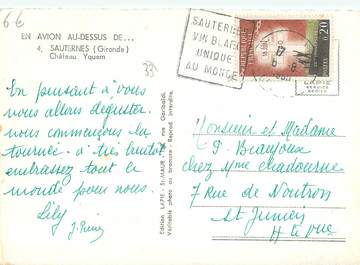 6€
EN AVION AU-DESSUS DE...
4, SAUTERNES (Gironde)
Château Yquem
33
SAUTERNES
VIN BLANC
UNIQUE
AU MONDE
0,20
LAPIE
SERVICE
AERIEN
En pensant à vous
nous allons déguster.
nous commençons la
tournée - à très bientôt
embrassez tout le
monde pour nous.
Lily
Edition LAPIE - St-MAUR - rue Garibaldi.
Véritable photo au bromure - Reprod. interdite.
Monsieur et Madame
chez Mme Chadourne
7 Rue de Nontron
St Junien
Hte Vne